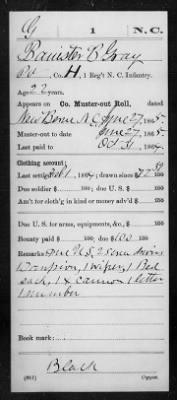 G 1 N.C.
Banister C Gray
Pvt, Co. H, 1 Reg't N. C. Infantry.
Age 22 years.
Appears on Co. Muster-out Roll, dated
New Berne N.C. June 27, 1865.
Muster-out to date June 27, 1865.
Last paid to Oct 31, 1864.
Clothing account:
Last settled 1864; drawn since $72 100
Due soldier $ 100; due U. S. $ 100
Am't for cloth'g in kind or money adv'd $ 100
Due U. S. for arms, equipments, &c., $ 100
Bounty paid $ 100; due $ 100 100
Remarks: Due U.S.
1 wiper, 1
1 cannon, 1 letter
1 number
Book mark:
Black
(861) Copyist.